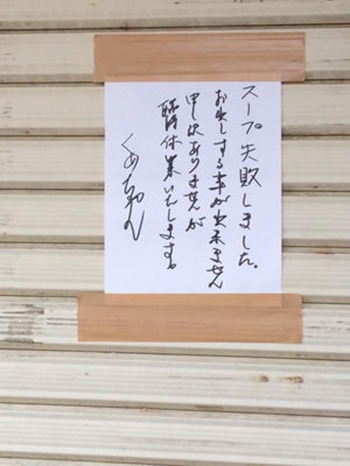 スープ失敗しました。
お出しする事が出来ません
申し訳ありませんが
臨時休業いたします。
くめちゃん